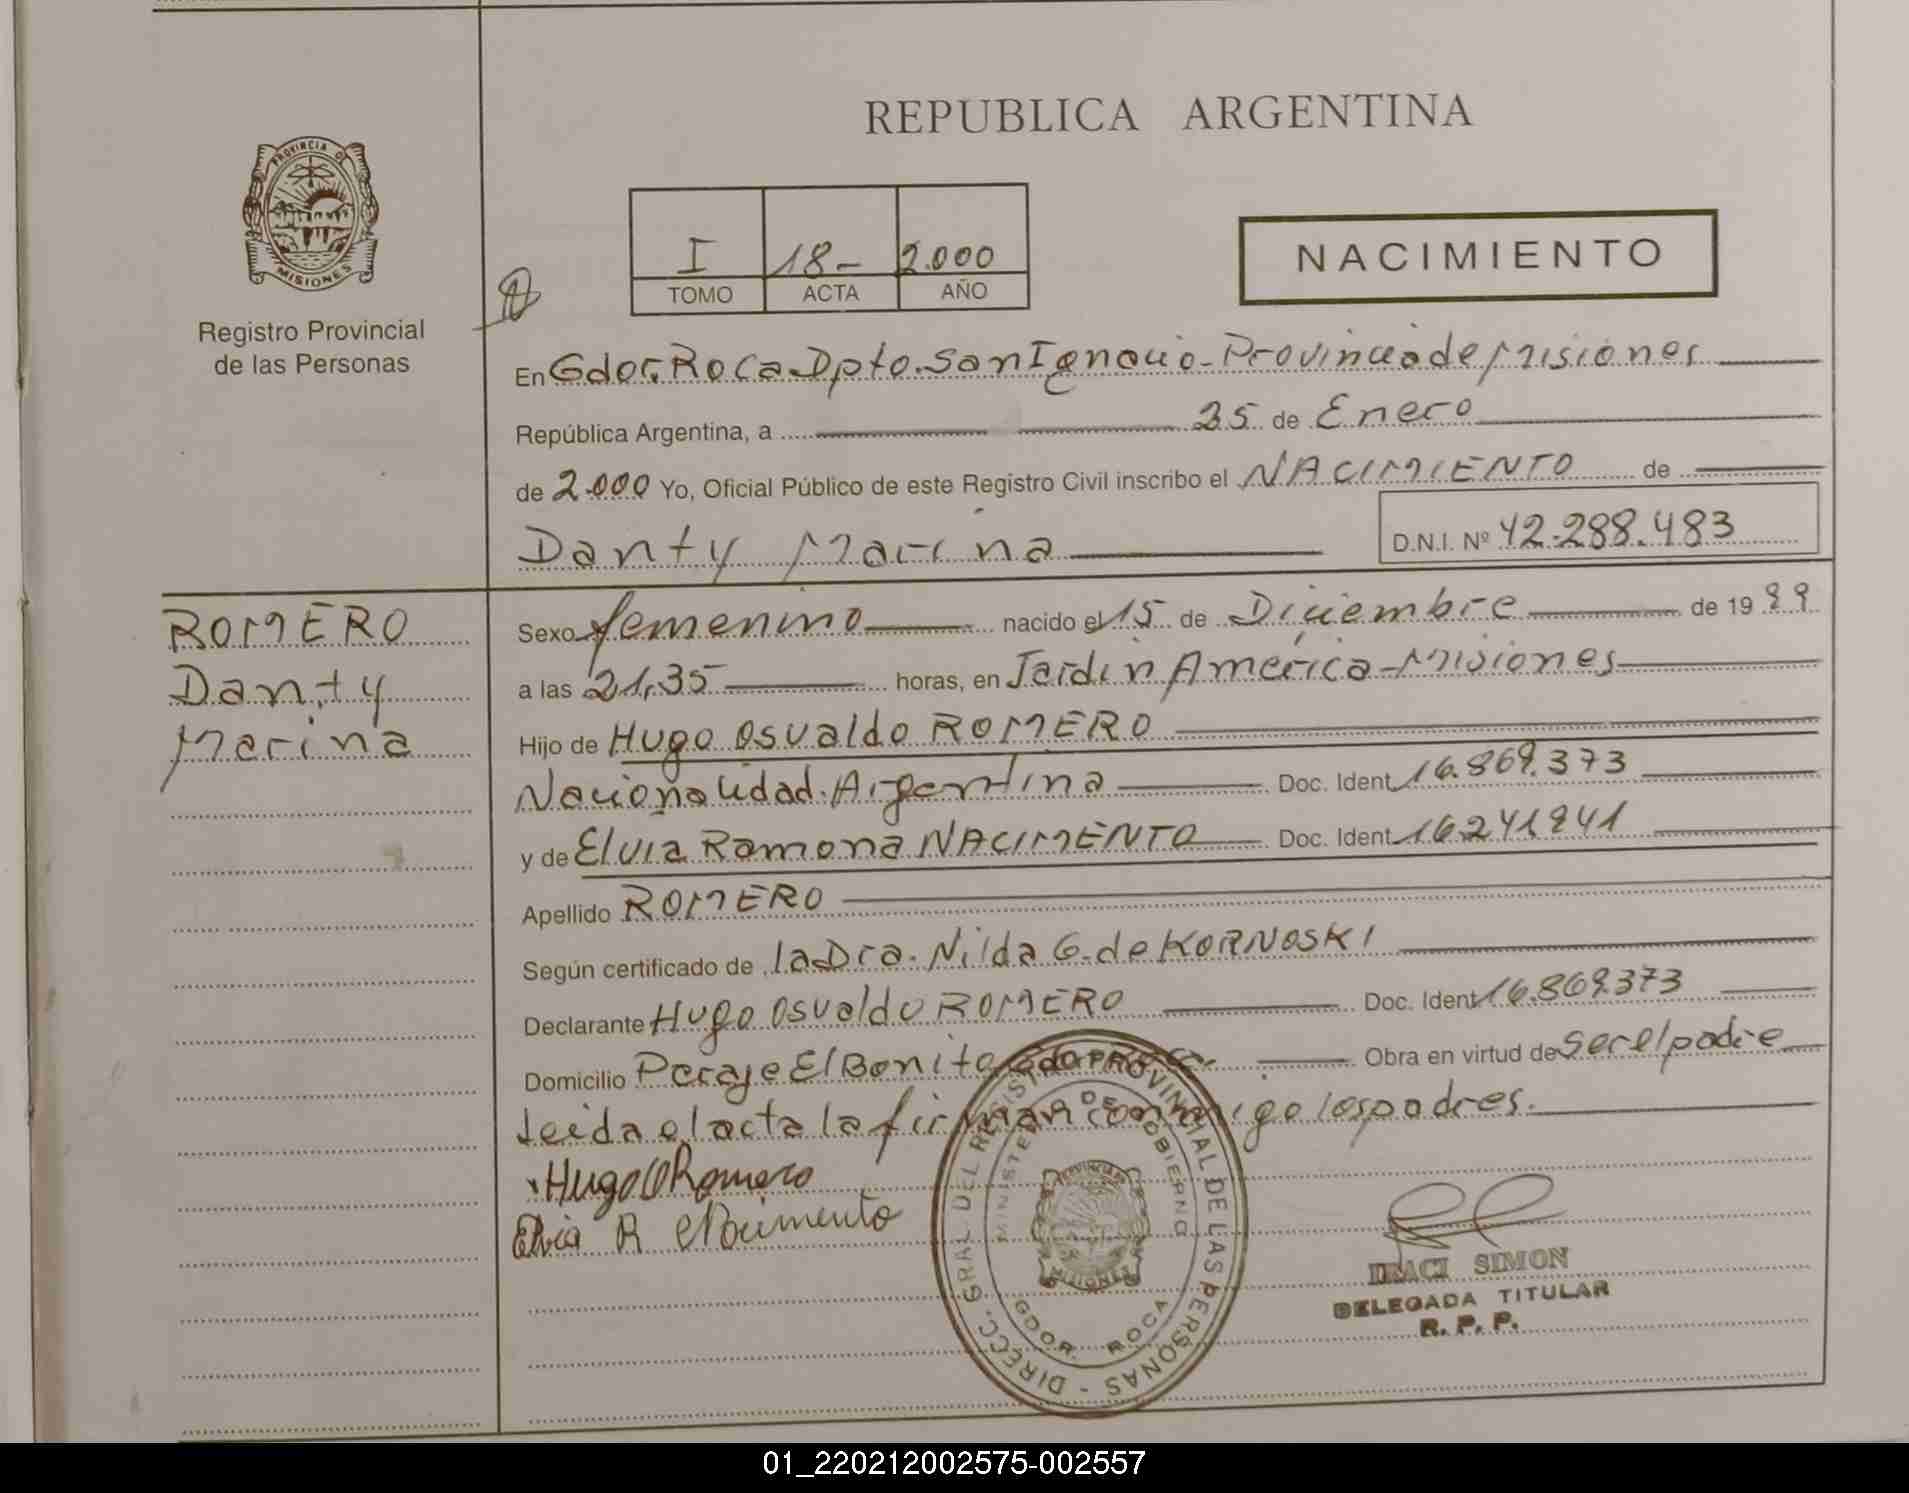 REPUBLICA ARGENTINA
PROVINCIA DE
MISIONES
Registro Provincial
de las Personas
I 18- 2.000
TOMO ACTA AÑO
NACIMIENTO
En Gdor. Roca Dpto. San Ignacio - Provincia de Misiones
República Argentina, a 25 de Enero
de 2.000 Yo, Oficial Público de este Registro Civil inscribo el NACIMIENTO de
Danty Marina D.N.I. Nº 42.288.483
ROMERO
Danty
Marina
Sexo femenino nacido el 15 de Diciembre de 19 99
a las 21,35 horas, en Jardin América - Misiones
Hijo de Hugo Osvaldo ROMERO
Nacionalidad Argentina Doc. Ident. 16.869.373
y de Elvia Ramona NACIMENTO Doc. Ident. 16.241.941
Apellido ROMERO
Según certificado de la Dra. Nilda G. de KORNOSKI
Declarante Hugo Osvaldo ROMERO Doc. Ident. 16.869.373
Domicilio Paraje El Bonito Gdor. Roca. Obra en virtud de ser el padre
Leida el acta la firman conmigo los padres.
Hugo O Romero
Elvia R Nacimento
DIRECC. GRAL DEL REGISTRO PROVINCIAL DE LAS PERSONAS -
MINISTERIO DE GOBIERNO
PROVINCIA DE
MISIONES
GDOR. ROCA
IRACI SIMON
DELEGADA TITULAR
R. P. P.
01_220212002575-002557